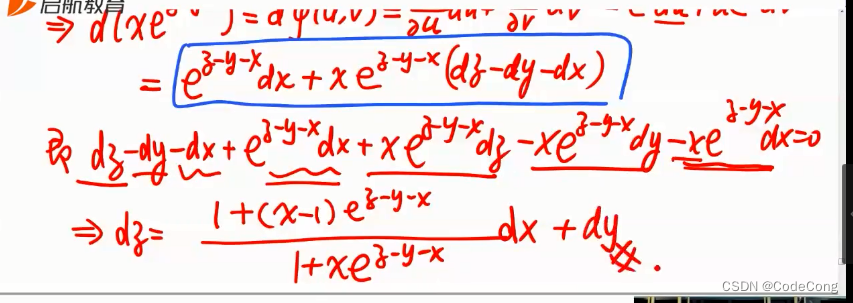 启航教育
⇒ d(xe ) = dφ(u,v) = ∂u du + ∂v dv
= e^{z-y-x}dx + xe^{z-y-x}(dz-dy-dx)
即 dz-dy-dx+e^{z-y-x}dx+xe^{z-y-x}dz-xe^{z-y-x}dy-xe^{z-y-x}dx=0
⇒ dz= \frac{1+(x-1)e^{z-y-x}}{1+xe^{z-y-x}} dx + dy.
CSDN @CodeCong